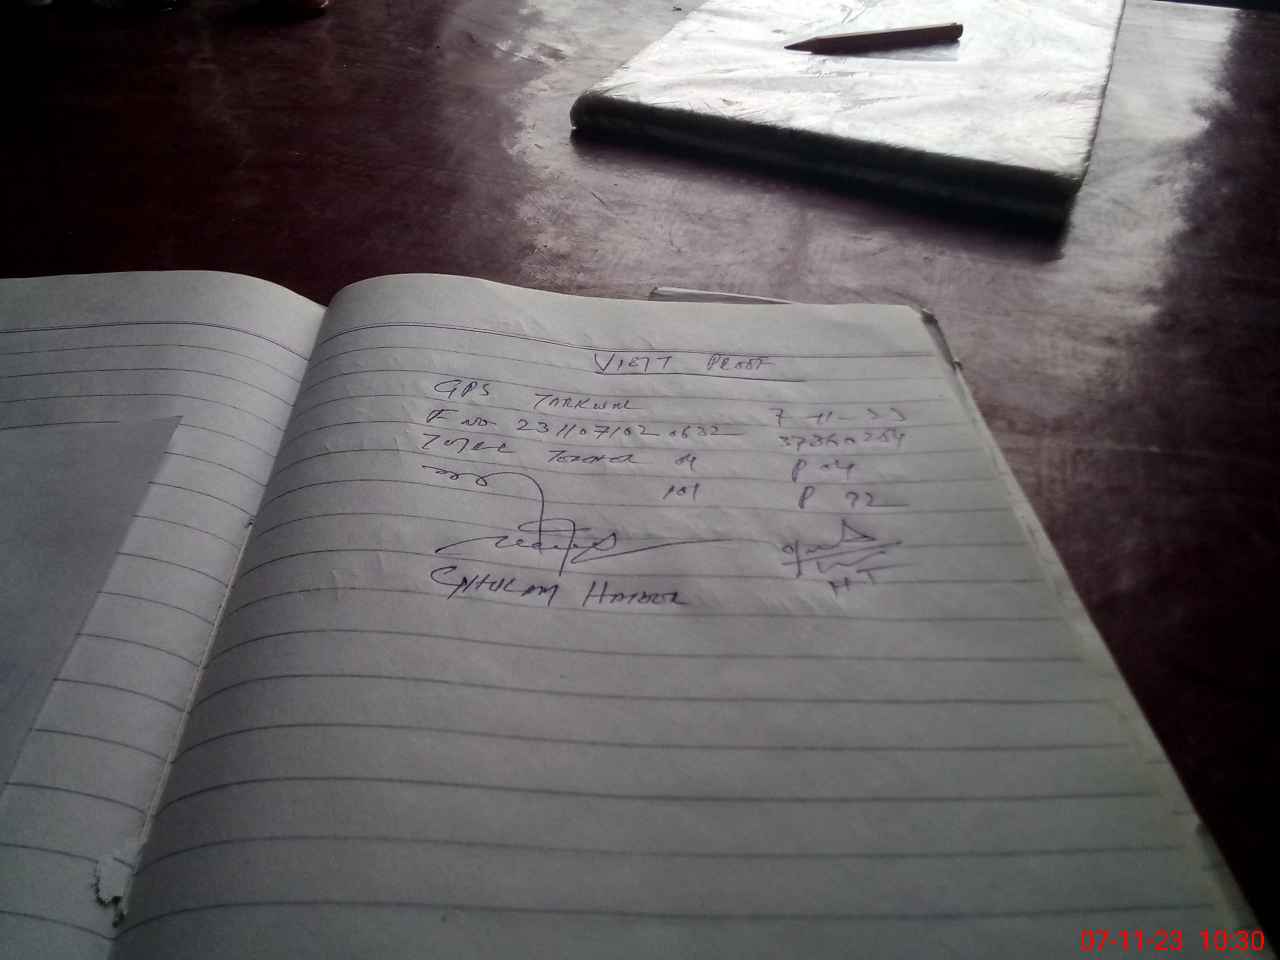 VISIT PROOF
GPS TARKWAL 7-11-23
F No. 231107102 0632 37360254
TOTAL TEACHER 04 P 04
101 P 72
GHULAM HAIDER
HT
07-11-23 10:30